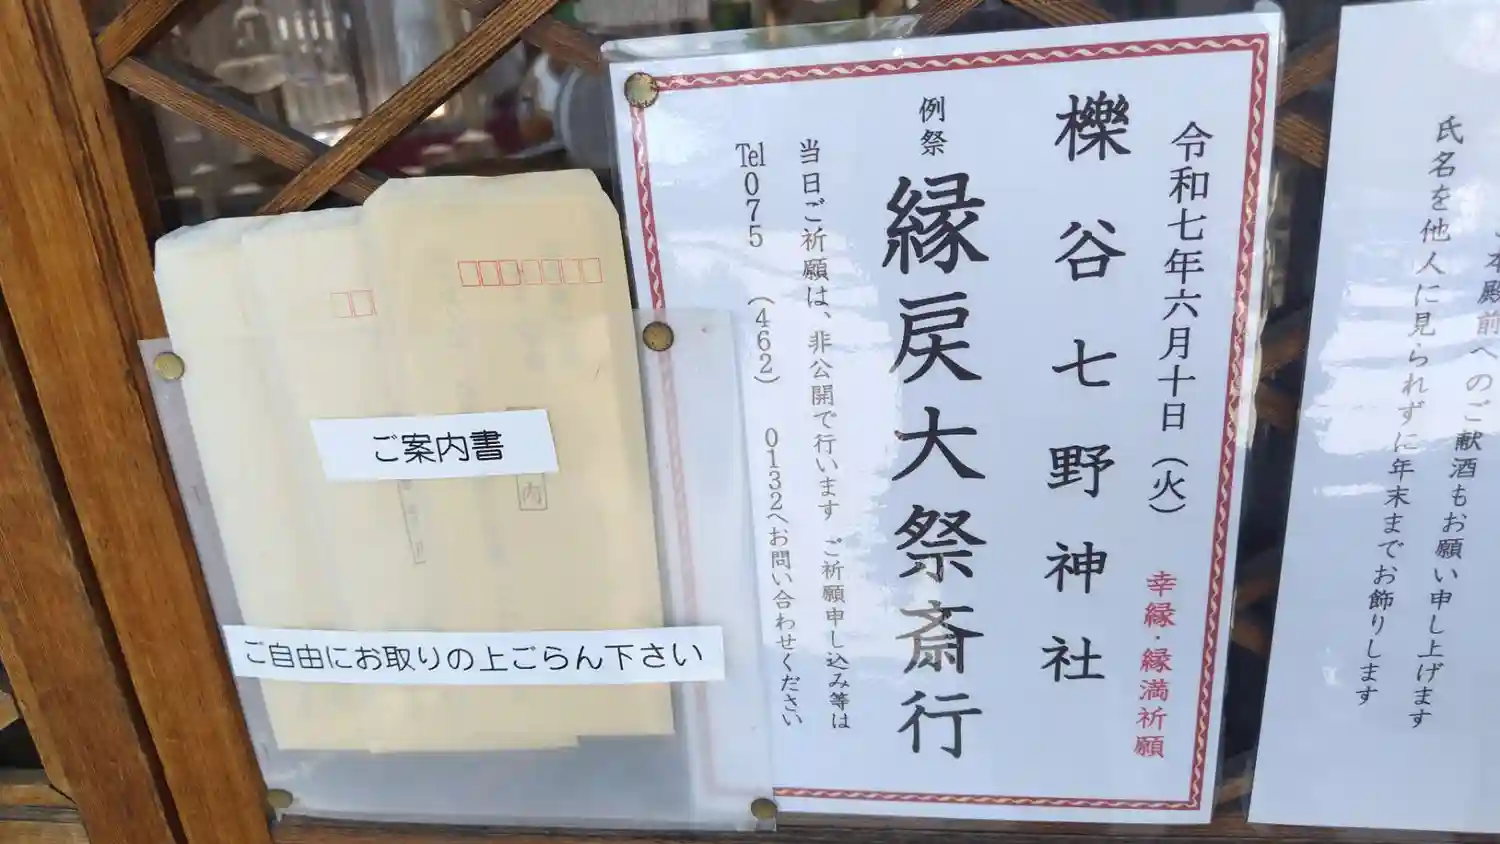 本殿前へのご献酒もお願い申し上げます
氏名を他人に見られずに年末までお飾りします
令和七年六月十日（火）
幸縁・縁満祈願
櫟谷七野神社
例祭 縁戻大祭斎行
当日ご祈願は、非公開で行います ご祈願申し込み等は
Tel075 (462) 0132へお問い合わせください
ご案内書
ご自由にお取りの上ごらん下さい